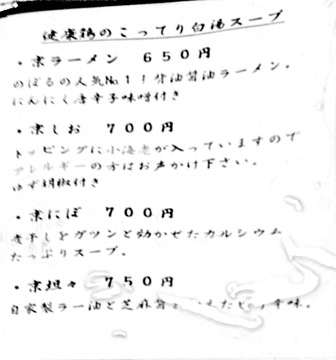 健康鶏のこってり白湯スープ
・京ラーメン　６５０円
のぼるの人気No１！背油醤油ラーメン。
にんにく唐辛子味噌付き
・京しお　７００円
トッピングに小海老が入っていますので
アレルギーの方はお声かけ下さい。
ゆず胡椒付き
・京にぼ　７００円
煮干しをガツンと効かせたカルシウム
たっぷりスープ。
・京坦々　７５０円
自家製ラー油と芝麻醤